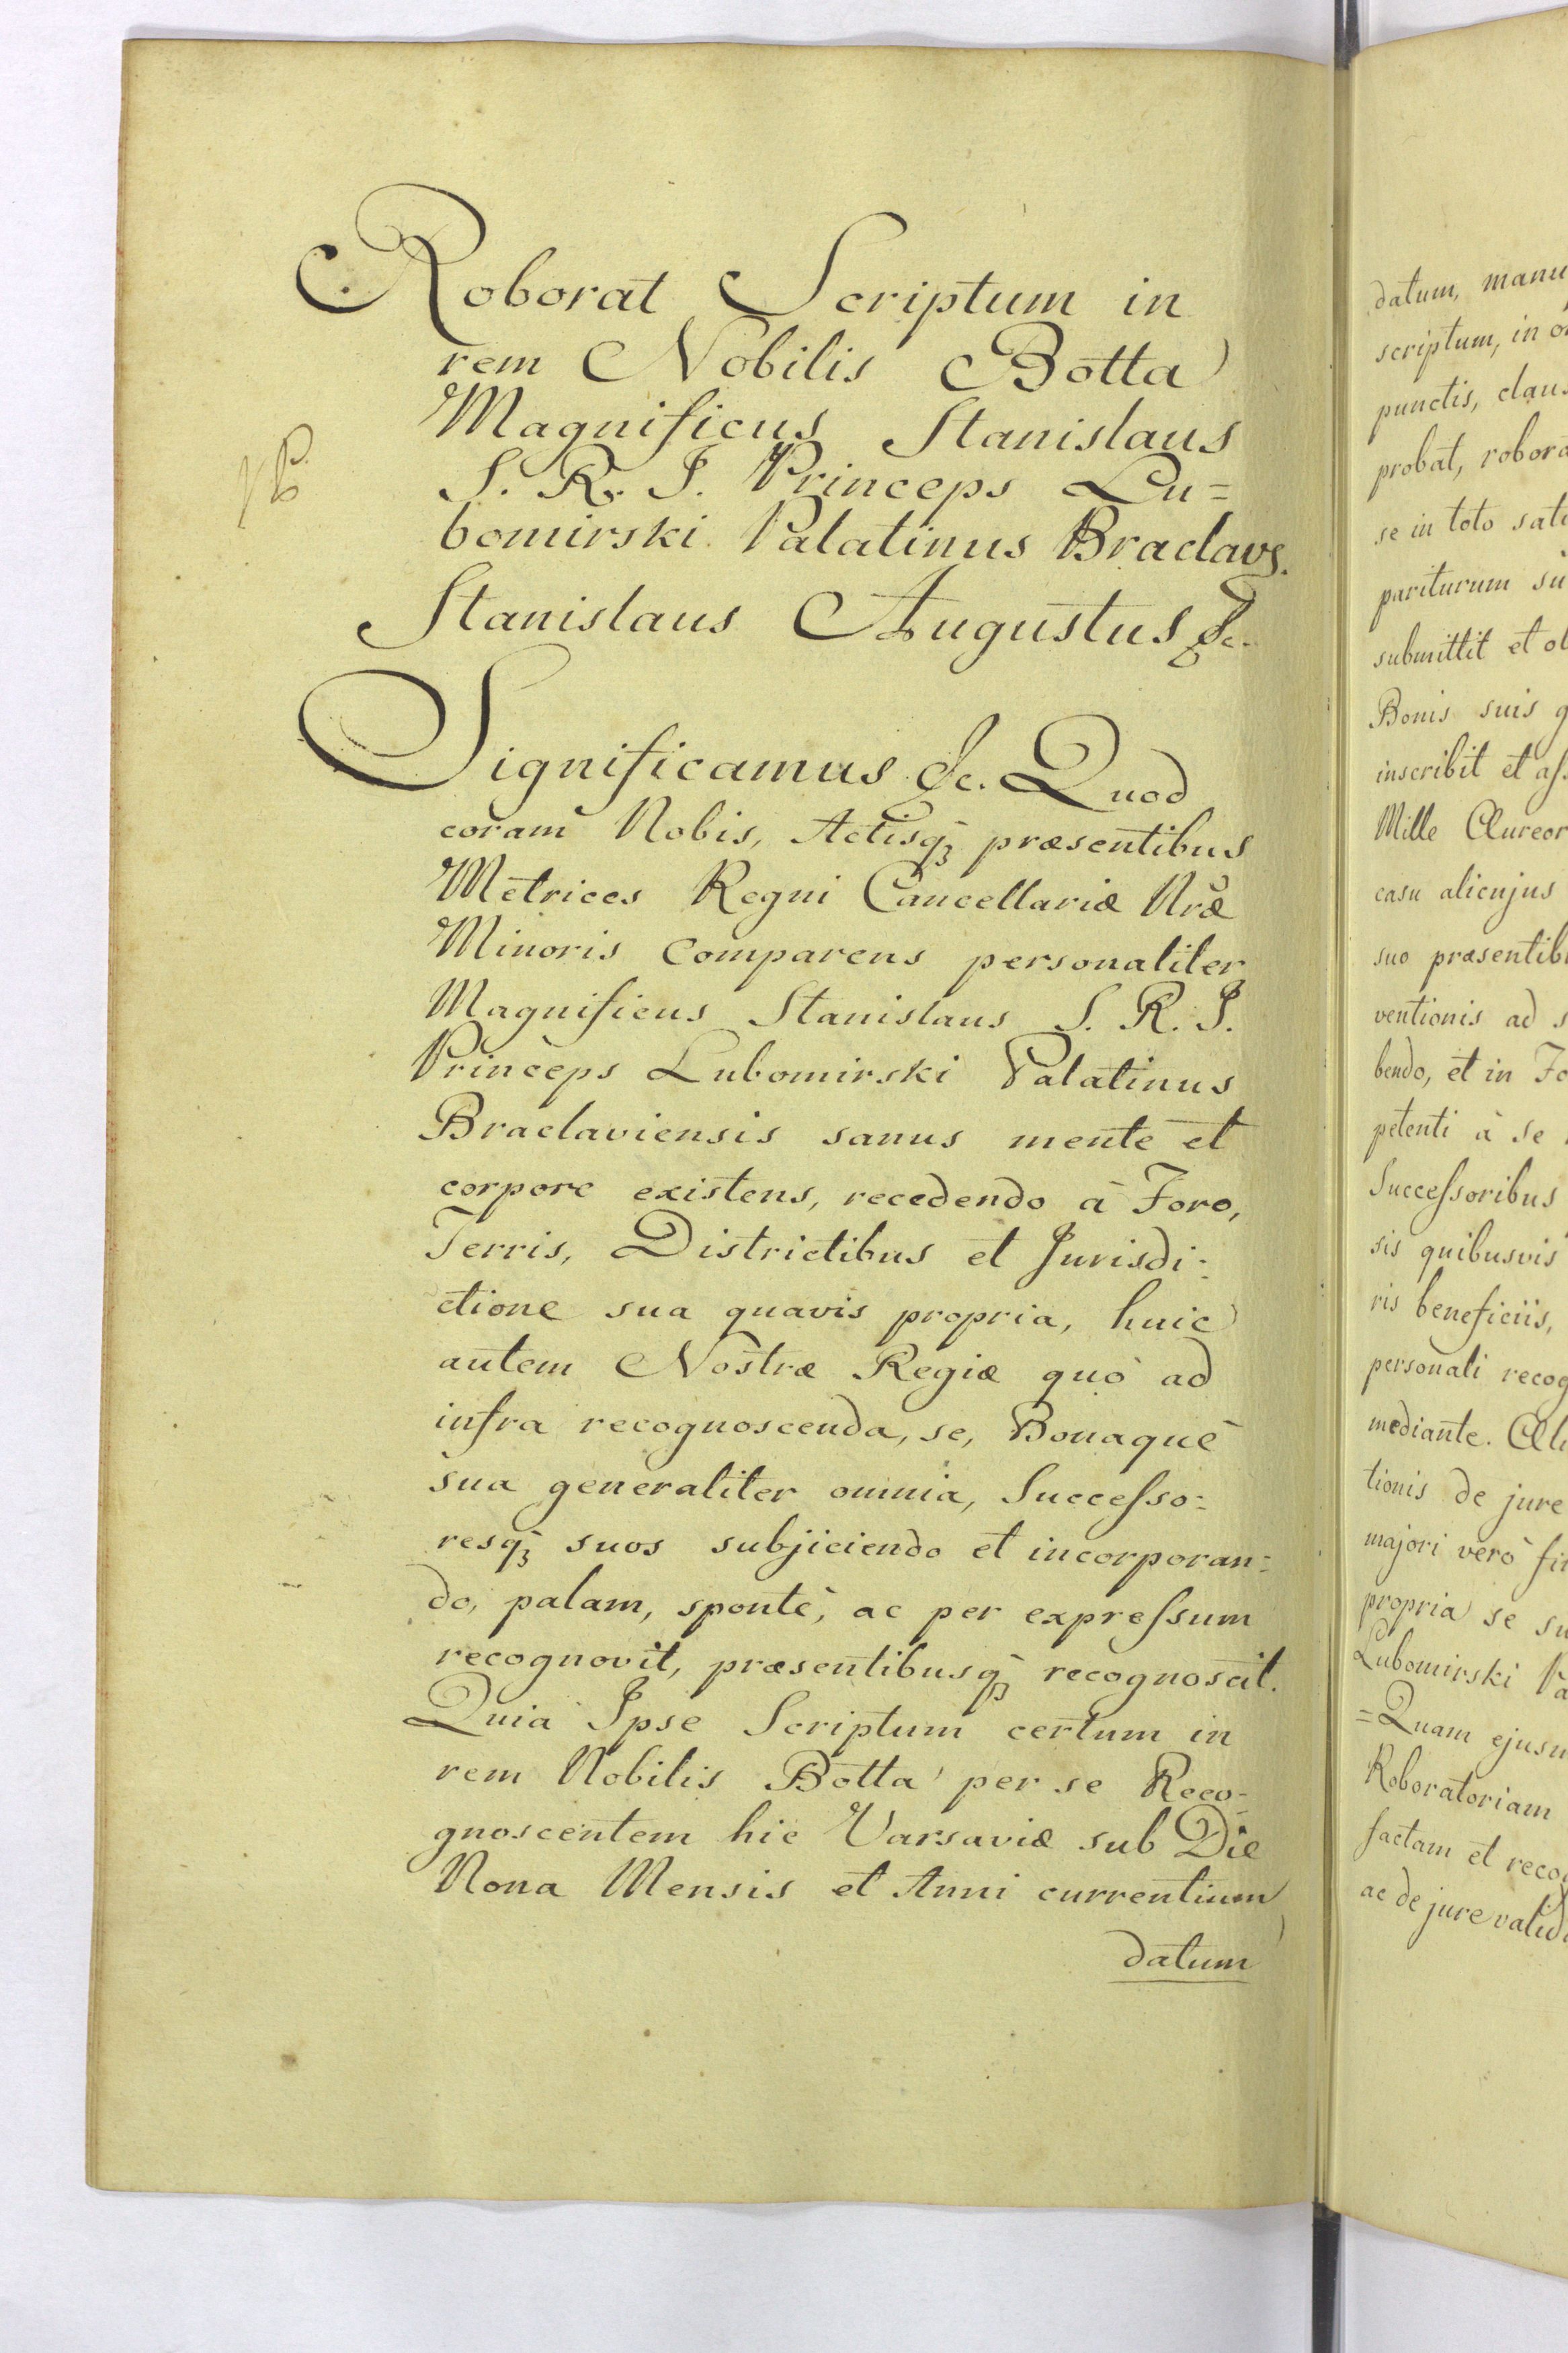 Roborat Scriptum in
rem Nobilis Botta
Magnificus Stanislaus
S. R. I. Princeps Lu=
bomirski Palatinus Braclavs.
Stanislaus Augustus &c.
Significamus &c. Quod
coram Nobis, Actisqꝫ præsentibus
Metrices Regni Cancellariæ Nræ
Minoris Comparens personaliter
Magnificus Stanislaus S. R. I.
Princeps Lubomirski Palatinus
Braclaviensis sanus mente et
corpore existens, recedendo à Foro,
Terris, Districtibus et Jurisdi=
ctione sua quavis propria, huic
autem Nostræ Regiæ quò ad
infra recognoscenda, se, Bonaquè
sua generaliter omnia, Successo=
resqꝫ suos subjiciendo et incorporan=
do, palam, spontè, ac per expressum
recognovit, præsentibusqꝫ recognoscit.
Quia Ipse Scriptum certum in
rem Nobilis Botta per se Reco=
gnoscentem hic Varsaviæ sub Die
Nona Mensis et Anni currentium
datum
datum, manu
scriptum, in
punctis,
probat,
se in toto
pariturum
submittit et
Bonis suis
inscribit et
Mille
casu alicujus
suo
ventionis ad
bendo, et in
petenti à se
Successoribus
sis quibusvis
ris beneficiis,
personali
mediante.
tionis de jure
majori verò
propria se
Lubomirski
=Quam
Roboratoriam
factam et
ac de jure